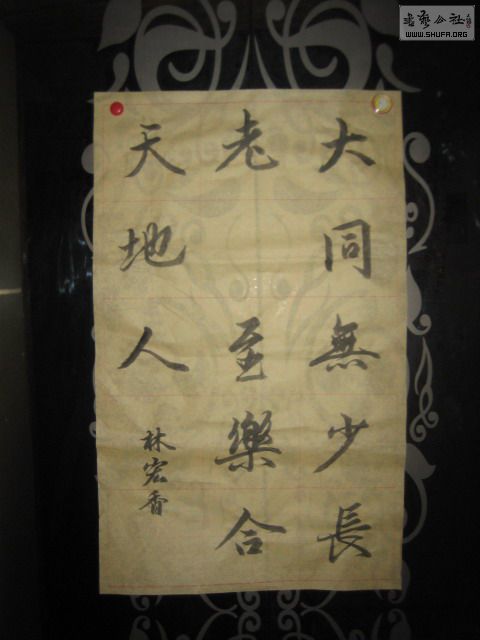 大同無少長
老 至樂合
天地人
林宏香
書藝公社
WWW.SHUFA.ORG